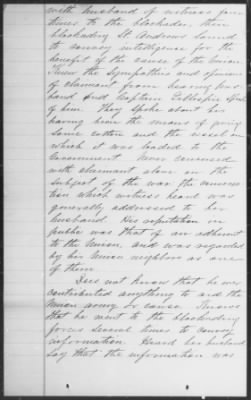 with husband of witness four
times to the blockaders, then
blockading St Andrews Sound
to convey intelligence for the
benefit of the cause of the Union
Knew the sympathies and opinions
of claimant from hearing hus
band and Captain Gallagher speak
of him. They spoke about his
having been the means of giving
some cotton and the vessel on
which it was loaded to the
Government Never conversed
with claimant alone on the
subject of the war the conversa
tion which witness heard was
generally addressed to her
husband His reputation in
public was that of an adherent
to the Union, and was regarded
by his Union neighbors as one
of them
Does not know that he ever
contributed anything to aid the
Union army or cause. Knows
that he went to the blockading
forces several times to convey
information. Heard her husband
say that the information was